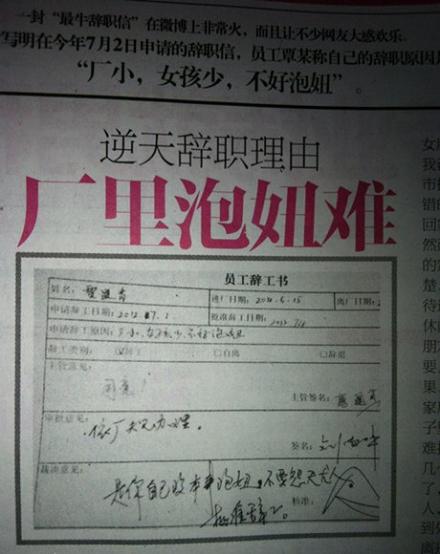 一封“最牛辞职信”在微博上非常火，而且让不少网友大感欢乐。
写明在今年7月2日申请的辞职信，员工覃某称自己的辞职原因是
“厂小，女孩少，不好泡妞”。
逆天辞职理由
厂里泡妞难
员工辞工书
姓名： 进厂日期： 离厂日期：
申请辞工日期： 批准辞工日期：
申请辞工原因：厂小，女孩少，不好泡妞
辞工类别： 辞工 □自离 □辞退
主管意见：
同意！
主管签名：
审批意见：
依厂规办理。
签名：
裁决意见：
是你自己没本事泡妞，不要怨天尤人
批准辞工。
核准：
女
我
市
错
回
然
的
楚
待
休
朋
要
果
家
子
难
几
了
人
到